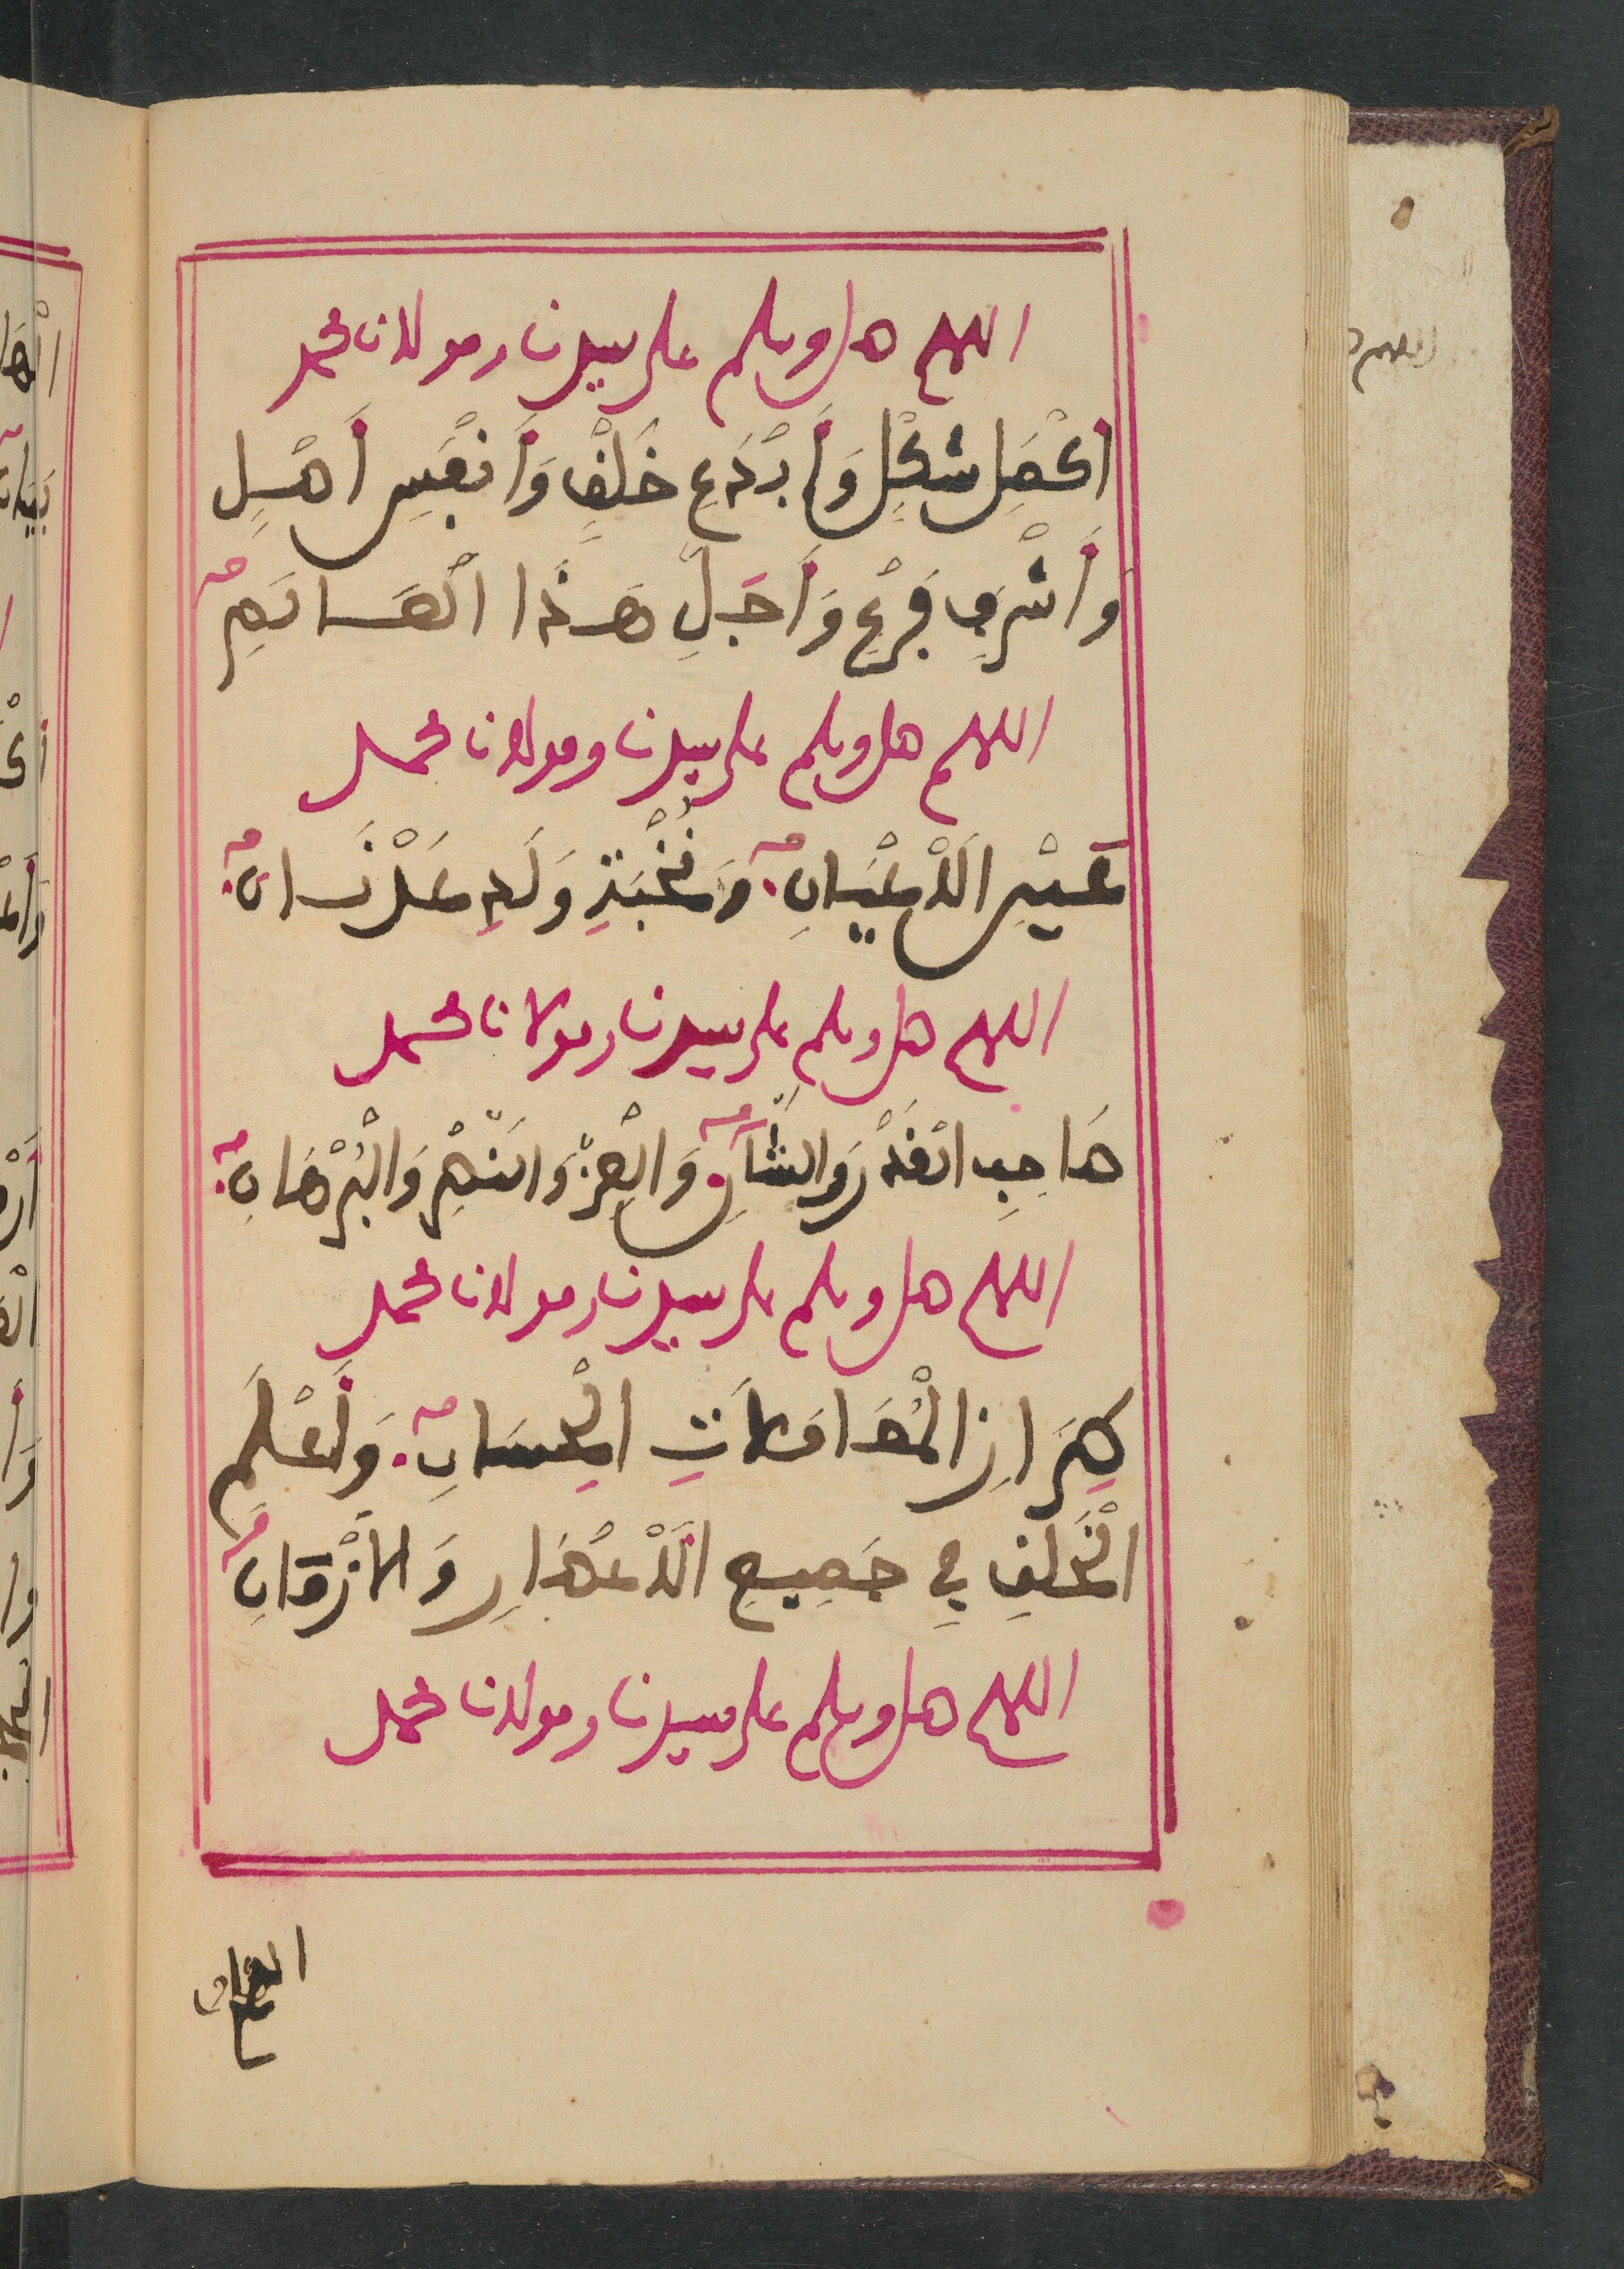 اللهم صل وسلم على سيدنا ومولانا محمد
أَكْمَلِ شَكْلٍ وَأَبْدَعِ خَلْقٍ وَأَنْفَسِ أَصْلٍ
وَأَشْرَفِ فَرْعٍ وَأَجَلِّ هَذَا الْعَالَمِ
اللهم صل وسلم على سيدنا ومولانا محمد
عَيْنِ الْأَعْيَانِ وَنُخْبَةِ وَلَدِ عَدْنَانَ
اللهم صل وسلم على سيدنا ومولانا محمد
صَاحِبِ الْقَدْرِ وَالشَّأْنِ وَالْعِزِّ وَالنَّصْرِ وَالْبُرْهَانِ
اللهم صل وسلم على سيدنا ومولانا محمد
طِرَازِ الْمَقَامَاتِ الْحِسَانِ وَأَعْلَمِ
الْخَلْقِ فِي جَمِيعِ الْأَعْصَارِ وَالْأَزْمَانِ
اللهم صل وسلم على سيدنا ومولانا محمد